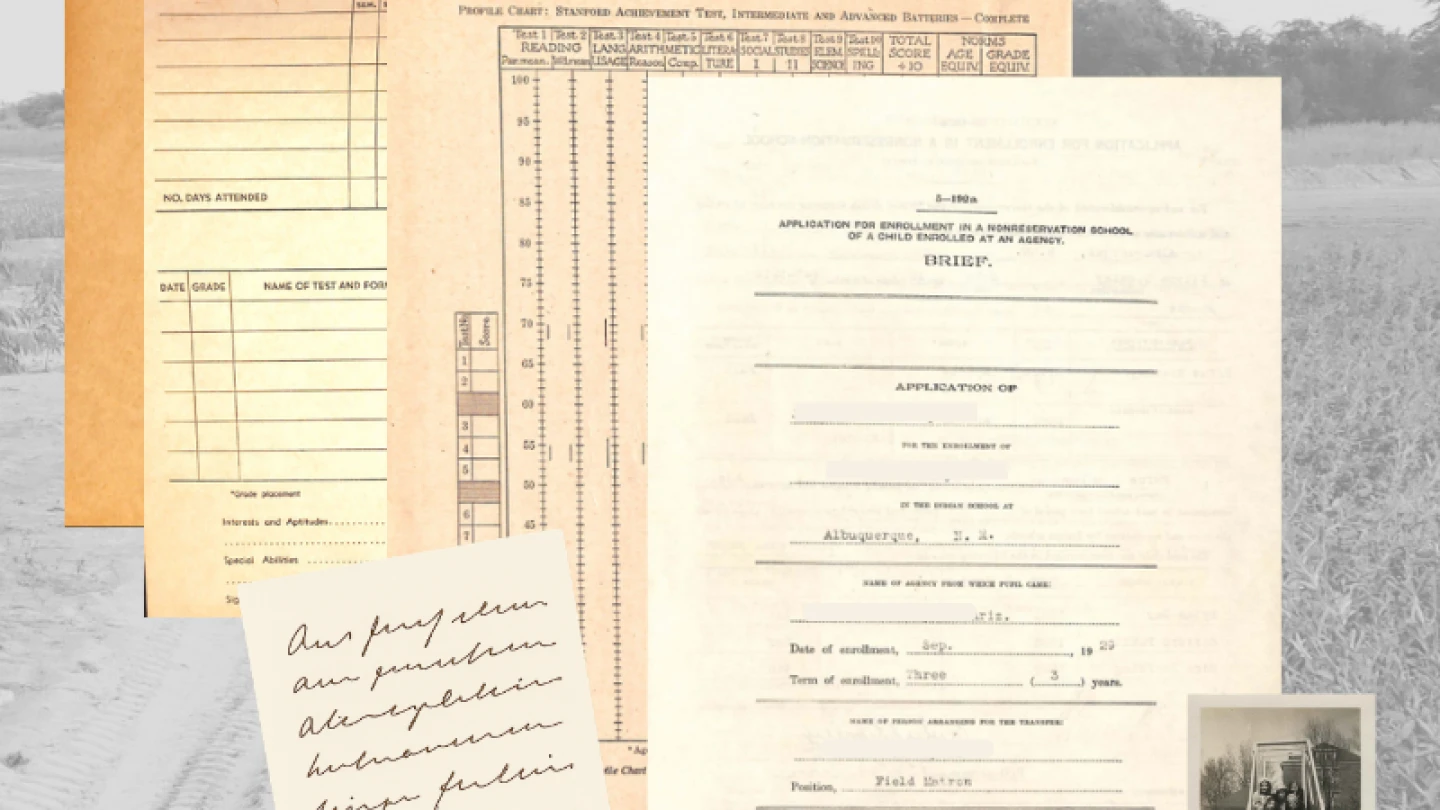 NO. DAYS ATTENDED
DATE GRADE NAME OF TEST AND FOR
*Grade placement
Interests and Aptitudes
Special Abilities
PROFILE CHART: STANFORD ACHIEVEMENT TEST, INTERMEDIATE AND ADVANCED BATTERIES — COMPLETE
Test 1 Test 2 Test 3 Test 4 Test 5 Test 6 Test 7 Test 8 Test 9 Test 10 TOTAL NORMS
READING LANG. ARITHMETIC LITERA- SOCIAL STUDIES ELEM. SPELL- SCORE AGE GRADE
Par. mean. USAGE Reason. Comp. TURE I II SCIENCE ING ÷10 EQUIV. EQUIV.
100
95
90
85
80
75
70
65
60
55
50
45
Test No. Score
1
2
3
4
5
6
7
file Chart
5—192a
APPLICATION FOR ENROLLMENT IN A NONRESERVATION SCHOOL
OF A CHILD ENROLLED AT AN AGENCY.
BRIEF.
APPLICATION OF
FOR THE ENROLLMENT OF
IN THE INDIAN SCHOOL AT
Albuquerque, N. M.
NAME OF AGENCY FROM WHICH PUPIL CAME:
Ariz.
Date of enrollment, Sep., 19 29
Term of enrollment, Three (3) years.
NAME OF PERSON ARRANGING FOR THE TRANSFER:
Position, Field Matron